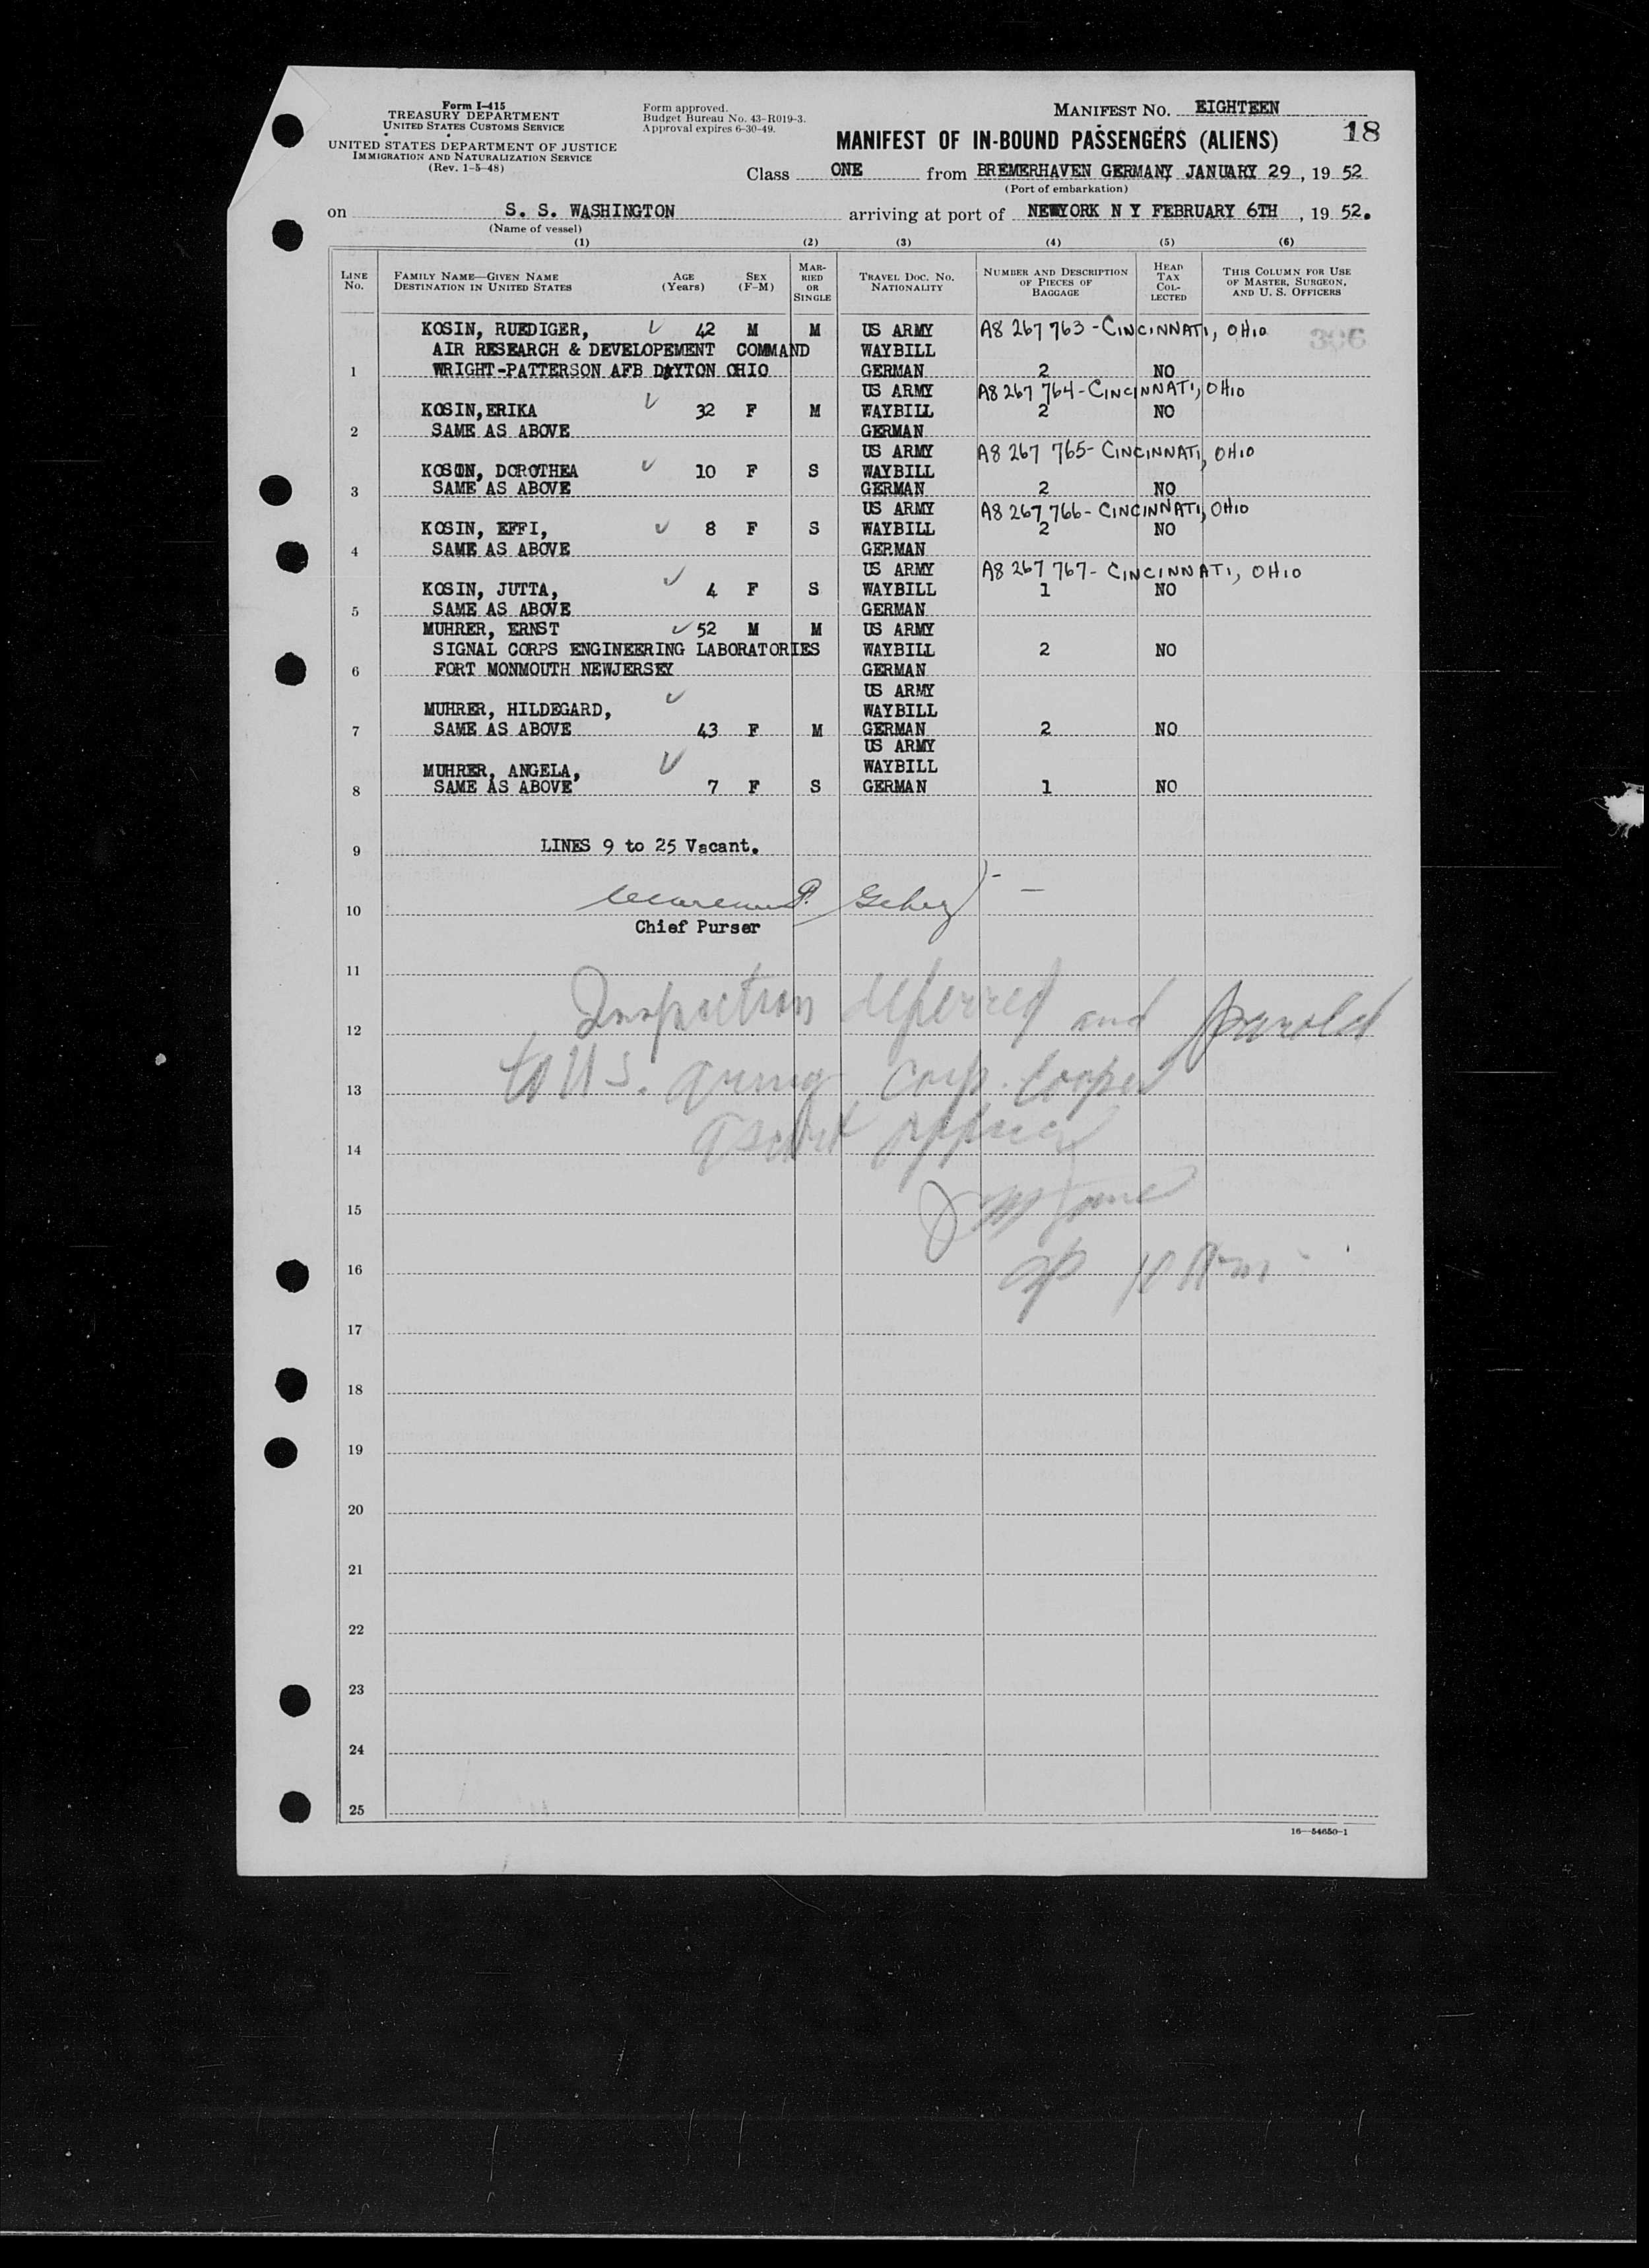 Form I-415
TREASURY DEPARTMENT
UNITED STATES CUSTOMS SERVICE
UNITED STATES DEPARTMENT OF JUSTICE
IMMIGRATION AND NATURALIZATION SERVICE
(Rev. 1-5-48)
Form approved.
Budget Bureau No. 43-R019-3.
Approval expires 6-30-49.
MANIFEST NO. EIGHTEEN
18
MANIFEST OF IN-BOUND PASSENGERS (ALIENS)
Class ONE from BREMERHAVEN GERMANY JANUARY 29, 19 52
(Port of embarkation)
on S. S. WASHINGTON arriving at port of NEWYORK N Y FEBRUARY 6TH, 19 52.
(Name of vessel)
(1) (2) (3) (4) (5) (6)
LINE No. FAMILY NAME—GIVEN NAME DESTINATION IN UNITED STATES AGE (Years) SEX (F-M) MARRIED OR SINGLE TRAVEL DOC. NO. NATIONALITY NUMBER AND DESCRIPTION OF PIECES OF BAGGAGE HEAD TAX COLLECTED THIS COLUMN FOR USE OF MASTER, SURGEON, AND U. S. OFFICERS
KOSIN, RUEDIGER, 42 M M US ARMY A8 267 763 - CINCINNATI, OHIO 306
AIR RESEARCH & DEVELOPEMENT COMMAND WAYBILL
1 WRIGHT-PATTERSON AFB DAYTON OHIO GERMAN 2 NO
US ARMY A8 267 764 - CINCINNATI, OHIO
KOSIN,ERIKA 32 F M WAYBILL 2 NO
2 SAME AS ABOVE GERMAN
US ARMY A8 267 765 - CINCINNATI, OHIO
KOSIN, DOROTHEA 10 F S WAYBILL
3 SAME AS ABOVE GERMAN 2 NO
US ARMY A8 267 766 - CINCINNATI, OHIO
KOSIN, EFFI, 8 F S WAYBILL 2 NO
4 SAME AS ABOVE GERMAN
US ARMY A8 267 767 - CINCINNATI, OHIO
KOSIN, JUTTA, 4 F S WAYBILL 1 NO
5 SAME AS ABOVE GERMAN
MUHRER, ERNST 52 M M US ARMY
SIGNAL CORPS ENGINEERING LABORATORIES WAYBILL 2 NO
6 FORT MONMOUTH NEWJERSEY GERMAN
US ARMY
MUHRER, HILDEGARD, WAYBILL
7 SAME AS ABOVE 43 F M GERMAN 2 NO
US ARMY
MUHRER, ANGELA, WAYBILL
8 SAME AS ABOVE 7 F S GERMAN 1 NO
9 LINES 9 to 25 Vacant.
10
Chief Purser
11
12 Inspection deferred and
13 to U.S. Army Corp. Cooper
14 Officer
15
16
17
18
19
20
21
22
23
24
25
16—54650-1